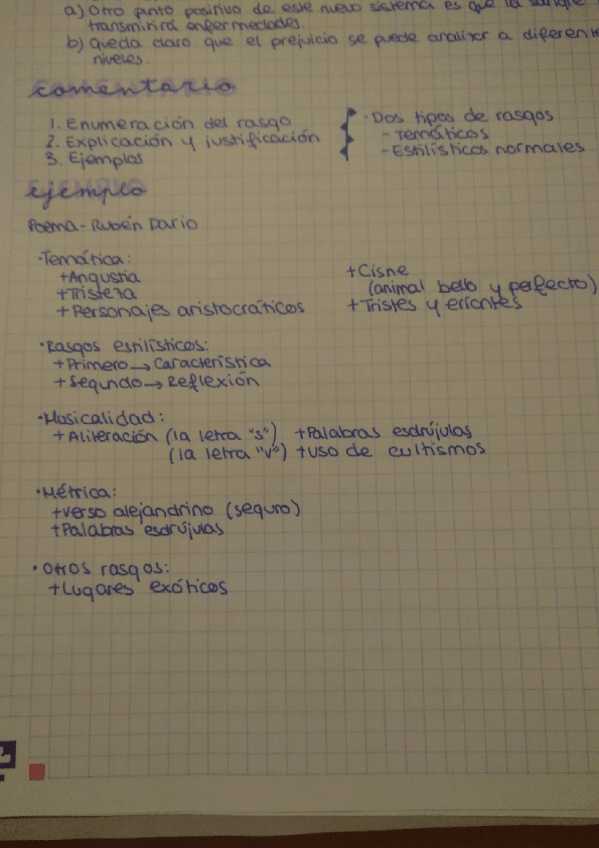 a) Otro punto positivo de este nuevo sistema es que la sangre
transmitirá enfermedades.
b) Queda claro que el prejuicio se puede analizar a diferente
niveles.
comentario
1. Enumeración del rasgo
2. Explicación y justificación
3. Ejemplos
· Dos tipos de rasgos
- Temáticos
- Estilísticos normales
ejemplo
Poema - Rubén Darío
· Temática:
+ Angustia
+ Tristeza
+ Personajes aristocráticos
+ Cisne
(animal bello y perfecto)
+ Tristes y errantes
· Rasgos estilísticos:
+ Primero → Característica
+ Segundo → Reflexión
· Musicalidad:
+ Aliteración (la letra "s") + Palabras esdrújulas
(la letra "v") + Uso de cultismos
· Métrica:
+ Verso alejandrino (seguro)
+ Palabras esdrújulas
· Otros rasgos:
+ Lugares exóticos